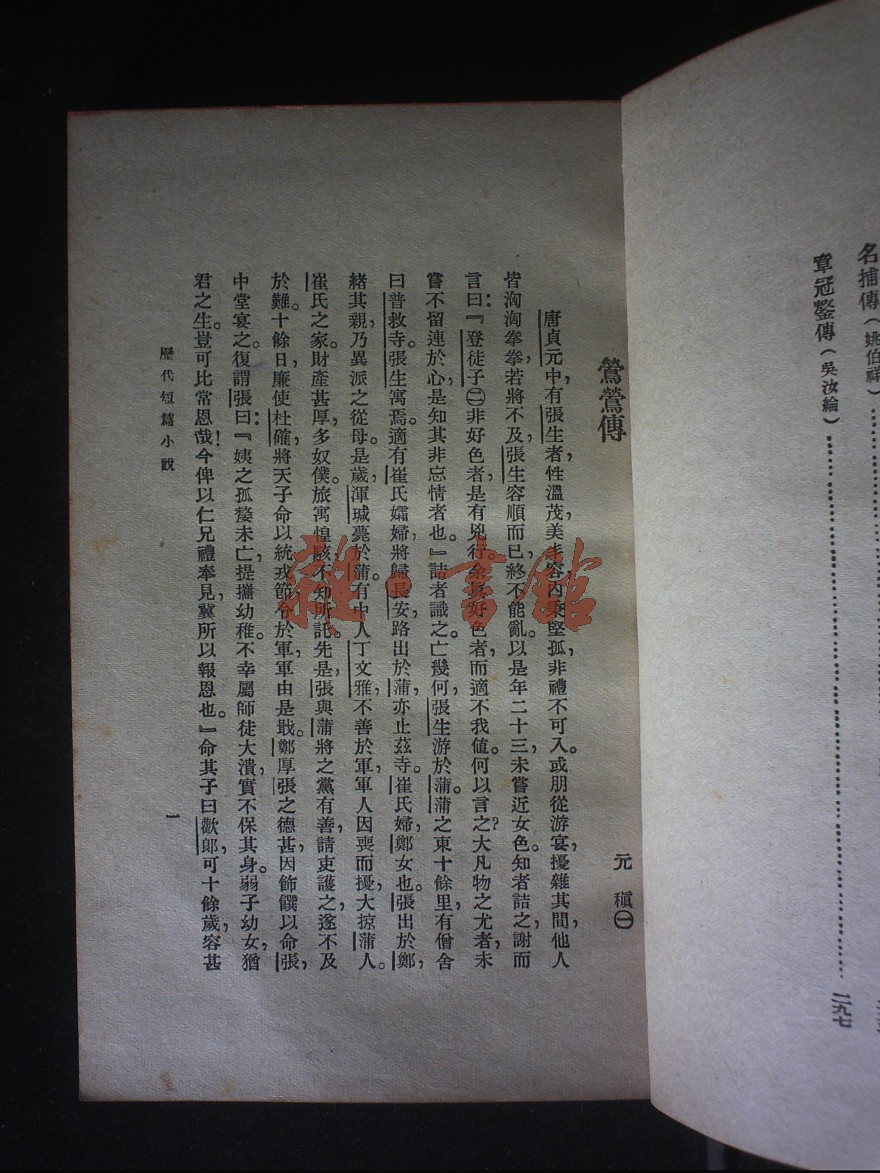 名捕傳（姚伯祥）
韋冠鏊傳（吳汝綸）……二九七
鶯鶯傳
元稹㊀
唐貞元中，有張生者，性溫茂，美丰容，內秉堅孤，非禮不可入。或朋從游宴，擾雜其間，他人
皆洶洶拳拳，若將不及，張生容順而已，終不能亂。以是年二十三，未嘗近女色。知者詰之，謝而
言曰：『登徒子㊁非好色者，是有兇行。余眞好色者，而適不我値。何以言之？大凡物之尤者，未
嘗不留連於心，是知其非忘情者也。』詰者識之。亡幾何，張生游於蒲。蒲之東十餘里，有僧舍
曰普救寺，張生寓焉。適有崔氏孀婦，將歸長安，路出於蒲，亦止茲寺。崔氏婦，鄭女也。張出於鄭，
緖其親，乃異派之從母。是歲，渾瑊薨於蒲。有中人丁文雅，不善於軍，軍人因喪而擾，大掠蒲人。
崔氏之家，財產甚厚，多奴僕。旅寓惶駭，不知所託。先是，張與蒲將之黨有善，請吏護之，遂不及
於難。十餘日，廉使杜確，將天子命以統戎節，令於軍，軍由是戢。鄭厚張之德甚，因飾饌以命張，
中堂宴之。復謂張曰：『姨之孤嫠未亡，提攜幼稚。不幸屬師徒大潰，實不保其身。弱子幼女，猶
君之生。豈可比常恩哉！今俾以仁兄禮奉見，冀所以報恩也。』命其子曰歡郎，可十餘歲，容甚
歷代短篇小說
一
雜·書館